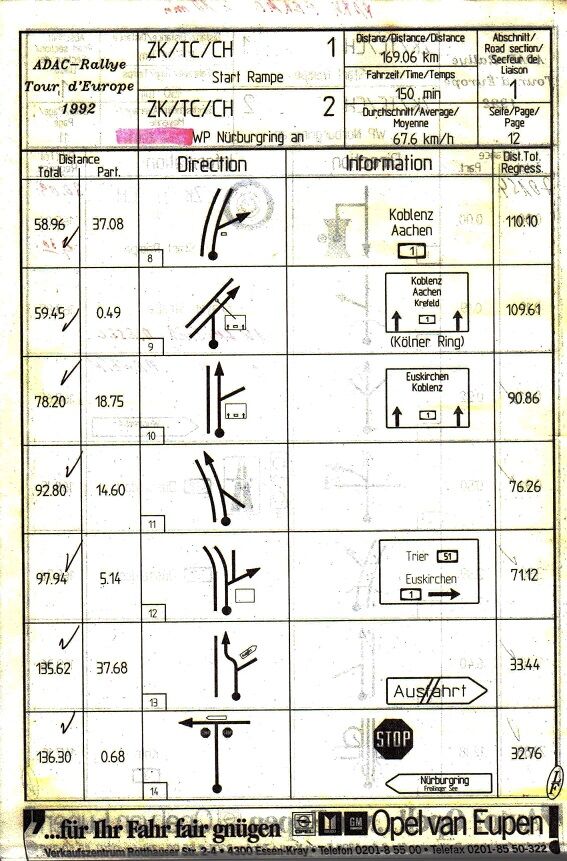 ADAC-Rallye
Tour d'Europe
1992
ZK/TC/CH 1
Start Rampe
ZK/TC/CH 2
WP Nürburgring an
Distanz/Distance/Distance
169.06 km
Fahrzeit/Time/Temps
150 min
Durchschnitt/Average/
Moyenne
67.6 km/h
Abschnitt/
Road section/
Secteur de
Liaison
1
Seite/Page/
Page
12
Distance
Total Part.
Direction
Information
Dist.Tot.
Regress.
58.96 37.08
8
Koblenz
Aachen
1
110.10
59.45 0.49
9
Koblenz
Aachen
Krefeld
1
(Kölner Ring)
109.61
78.20 18.75
10
Euskirchen
Koblenz
1
90.86
92.80 14.60
11
76.26
97.94 5.14
12
Trier 51
Euskirchen
1
71.12
135.62 37.68
13
Ausfahrt
33.44
136.30 0.68
14
STOP
Nürburgring
Freilinger See
32.76
"...für Ihr Fahr fair gnügen
GM
Opel van Eupen!
Verkaufszentrum Rotthauser Str. 2-4 • 4300 Essen-Kray • Telefon 0201-8 55 00 • Telefax 0201-85 50-322